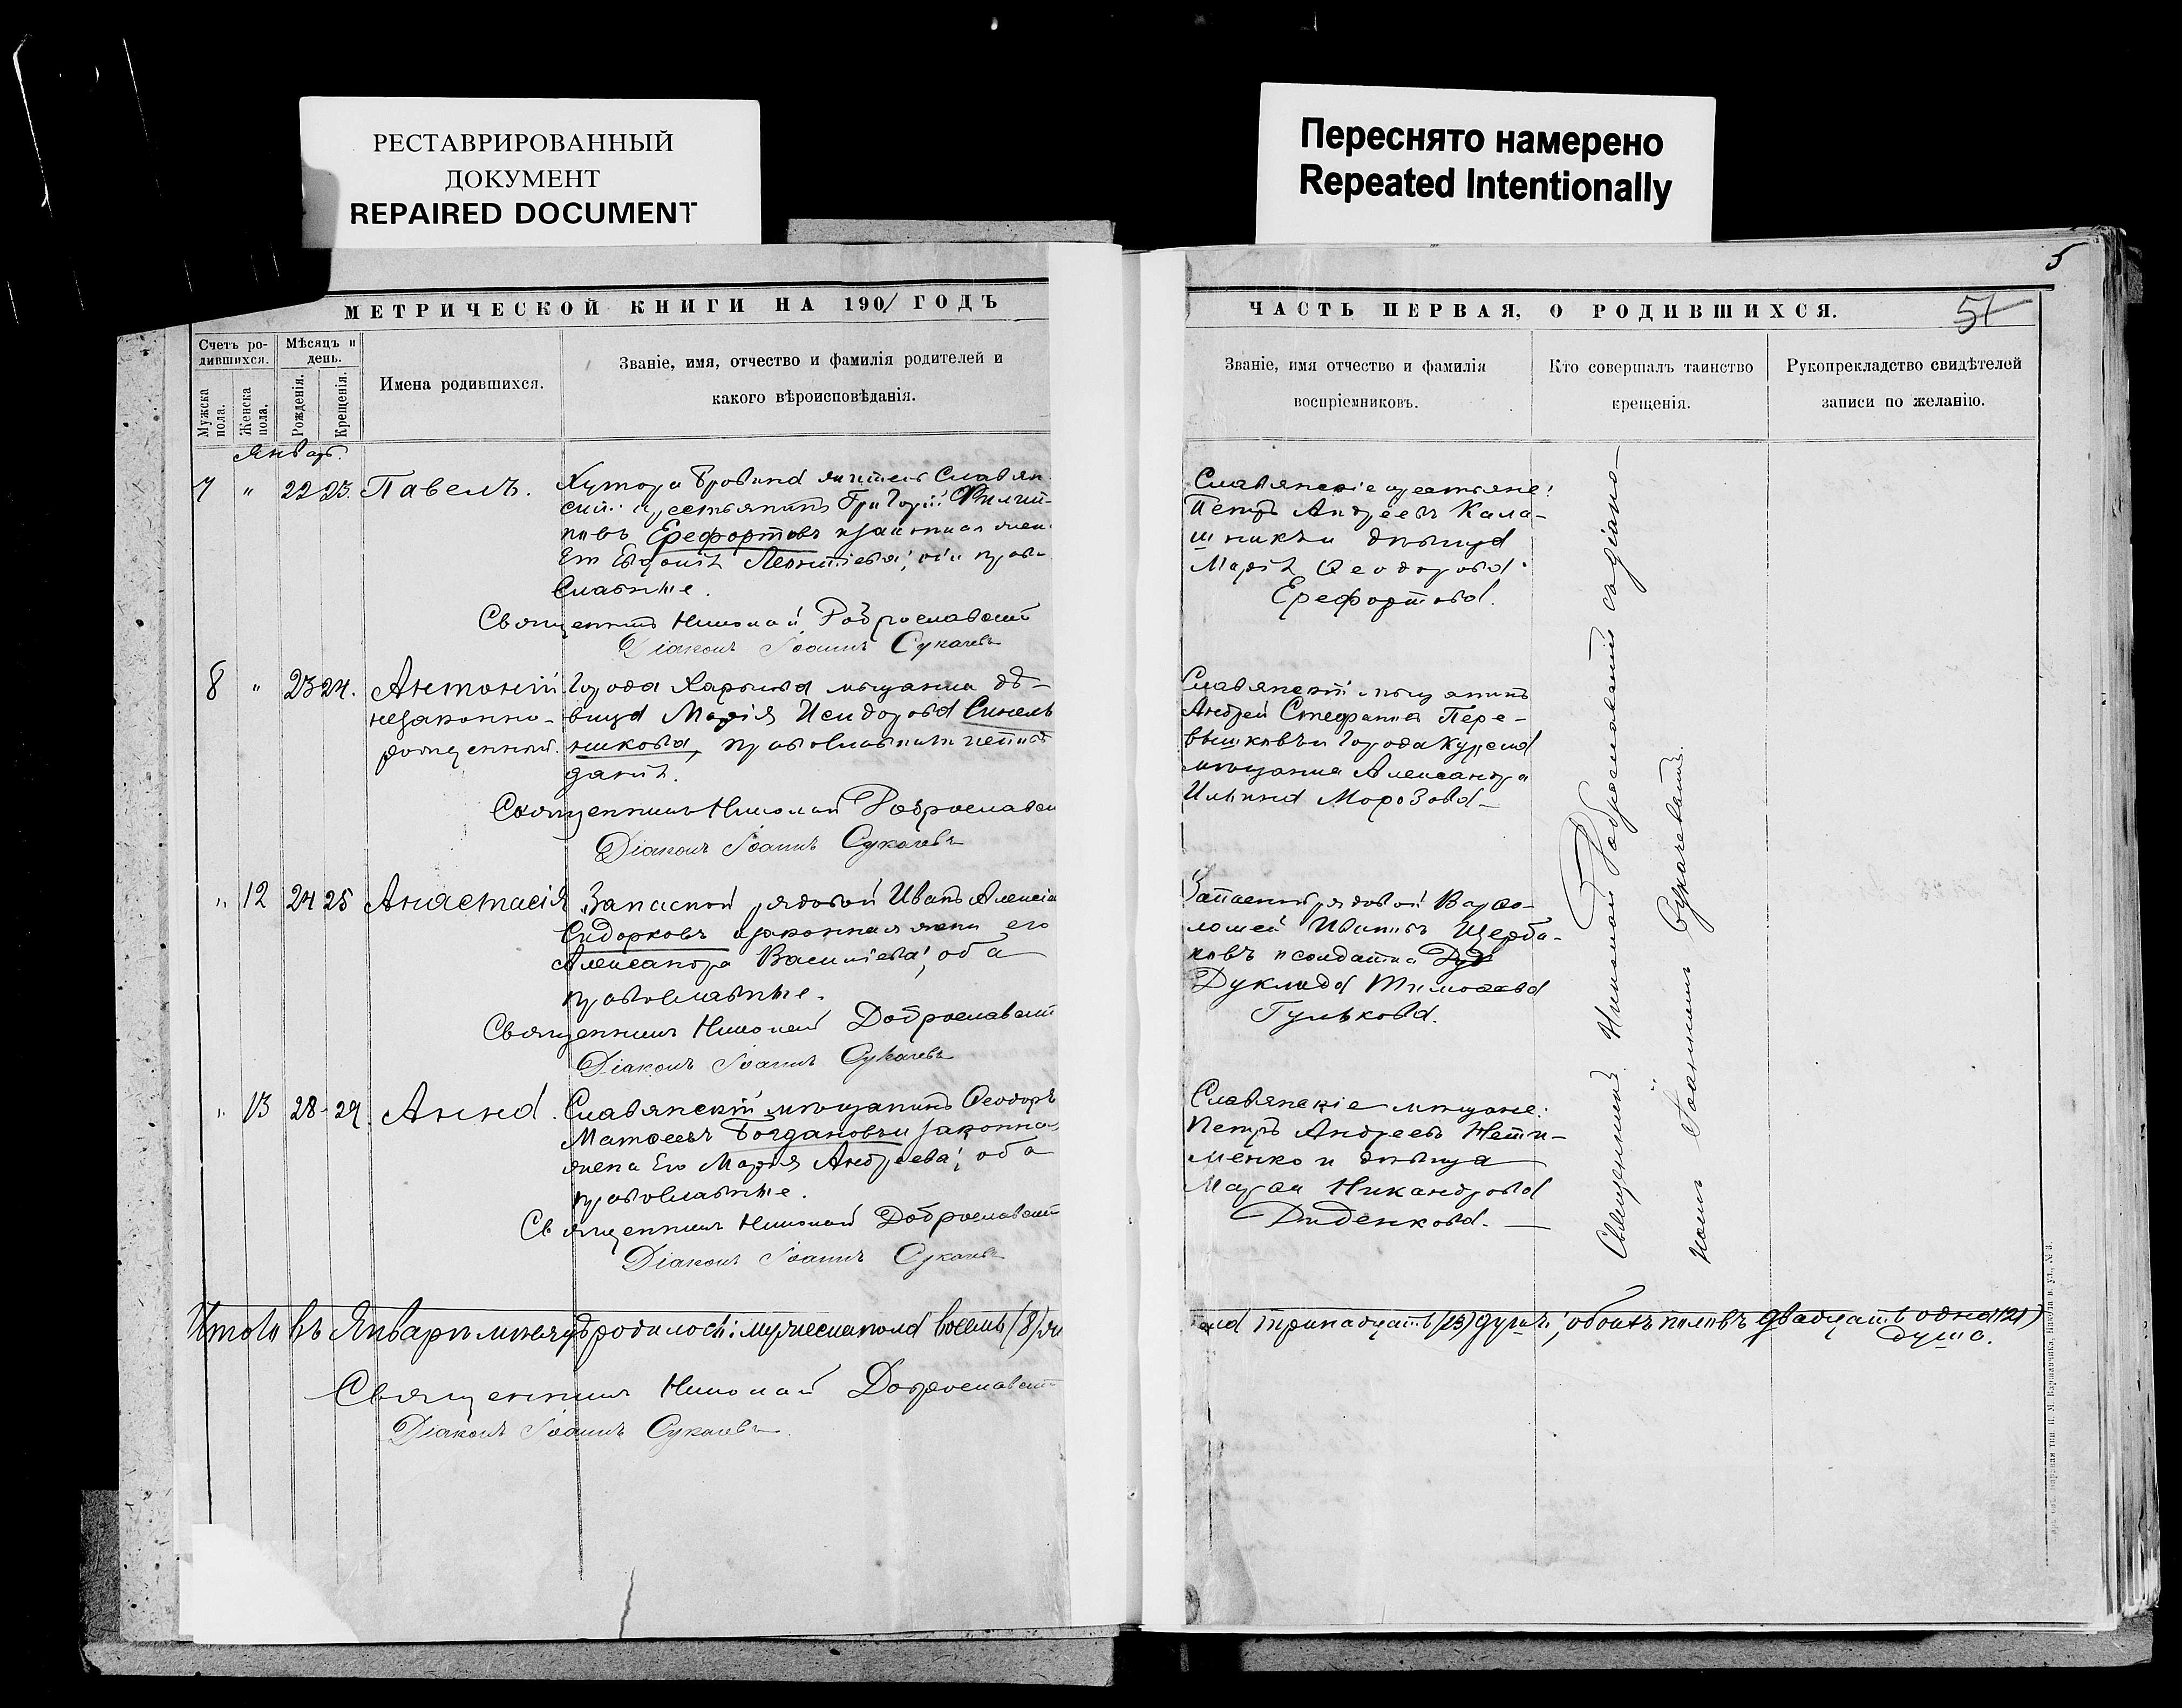 РЕСТАВРИРОВАННЫЙ
ДОКУМЕНТ
REPAIRED DOCUMENT
Переснято намерено
Repeated Intentionally
5
МЕТРИЧЕСКОЙ КНИГИ НА 1901 ГОДЪ
Счетъ ро-
дившихся.
Мужска
пола.
Женска
пола.
Мѣсяцъ и
день.
Рожденія.
Крещенія.
Имена родившихся.
Званіе, имя, отчество и фамилія родителей и
какого вѣроисповѣданія.
Январь.
7 " 22 23. Павелъ.
житель Славян
Григорій Филип-
повъ Ерефортовъ и законная жена
его Леонтіева; оба право
славные.
Священникъ Николай Доброславскій
Діаконъ Іоаннъ Сукачевъ
8 " 23 24. Антоній
незаконно-
рожденный.
Города Харькова мѣщанка дѣ-
вица Марія Исидорова Синель
никова, православнаго
Священникъ Николай Доброславскі
Діаконъ Іоаннъ Сукачевъ
" 12 24 25 Анастасія
Запасной рядовой Иванъ Алексіе
Сидорковъ и законная жена его
Александра Василіева; оба
православные.
Священникъ Николай Доброславскій
Діаконъ Іоаннъ Сукачевъ
" 13 28 29. Анна.
Славянскій мѣщанинъ Ѳеодоръ
Матѳеевъ Богдановъ и законная
жена его Марія Андреева; оба
православные.
Священникъ Николай Доброславскій
Діаконъ Іоаннъ Сукачевъ
Итого въ Январѣ мѣсяцѣ родилось: мужеска пола восемь (8) же
Священникъ Николай Доброславскій
Діаконъ Іоаннъ Сукачевъ
ЧАСТЬ ПЕРВАЯ, О РОДИВШИХСЯ.
51
Званіе, имя отчество и фамилія
воспріемниковъ.
Кто совершалъ таинство
крещенія.
Рукоприкладство свидѣтелей
записи по желанію.
Славянскіе крестьяне:
Петръ Андреевъ Кала-
шникъ и дѣвица
Марія Ѳеодорова
Ерефортова.
Славянскій мѣщанинъ
Андрей Стефановъ Пере-
и города Курска
мѣщанка Александра
Ильина Морозова
Запасной рядовой Варѳо-
ломей Ивановъ Щерба-
ковъ и солдатка
Тимоѳеева
Гулькова.
Славянскіе мѣщане:
Петръ Андреевъ Нети-
менко и дѣвица
Марѳа Никандрова
Диденкова.
Священникъ Николай Доброславскій съ діако-
номъ Іоанномъ Сукачевымъ.
тринадцать (13) душъ; обоихъ половъ двадцать одна (21)
душа.